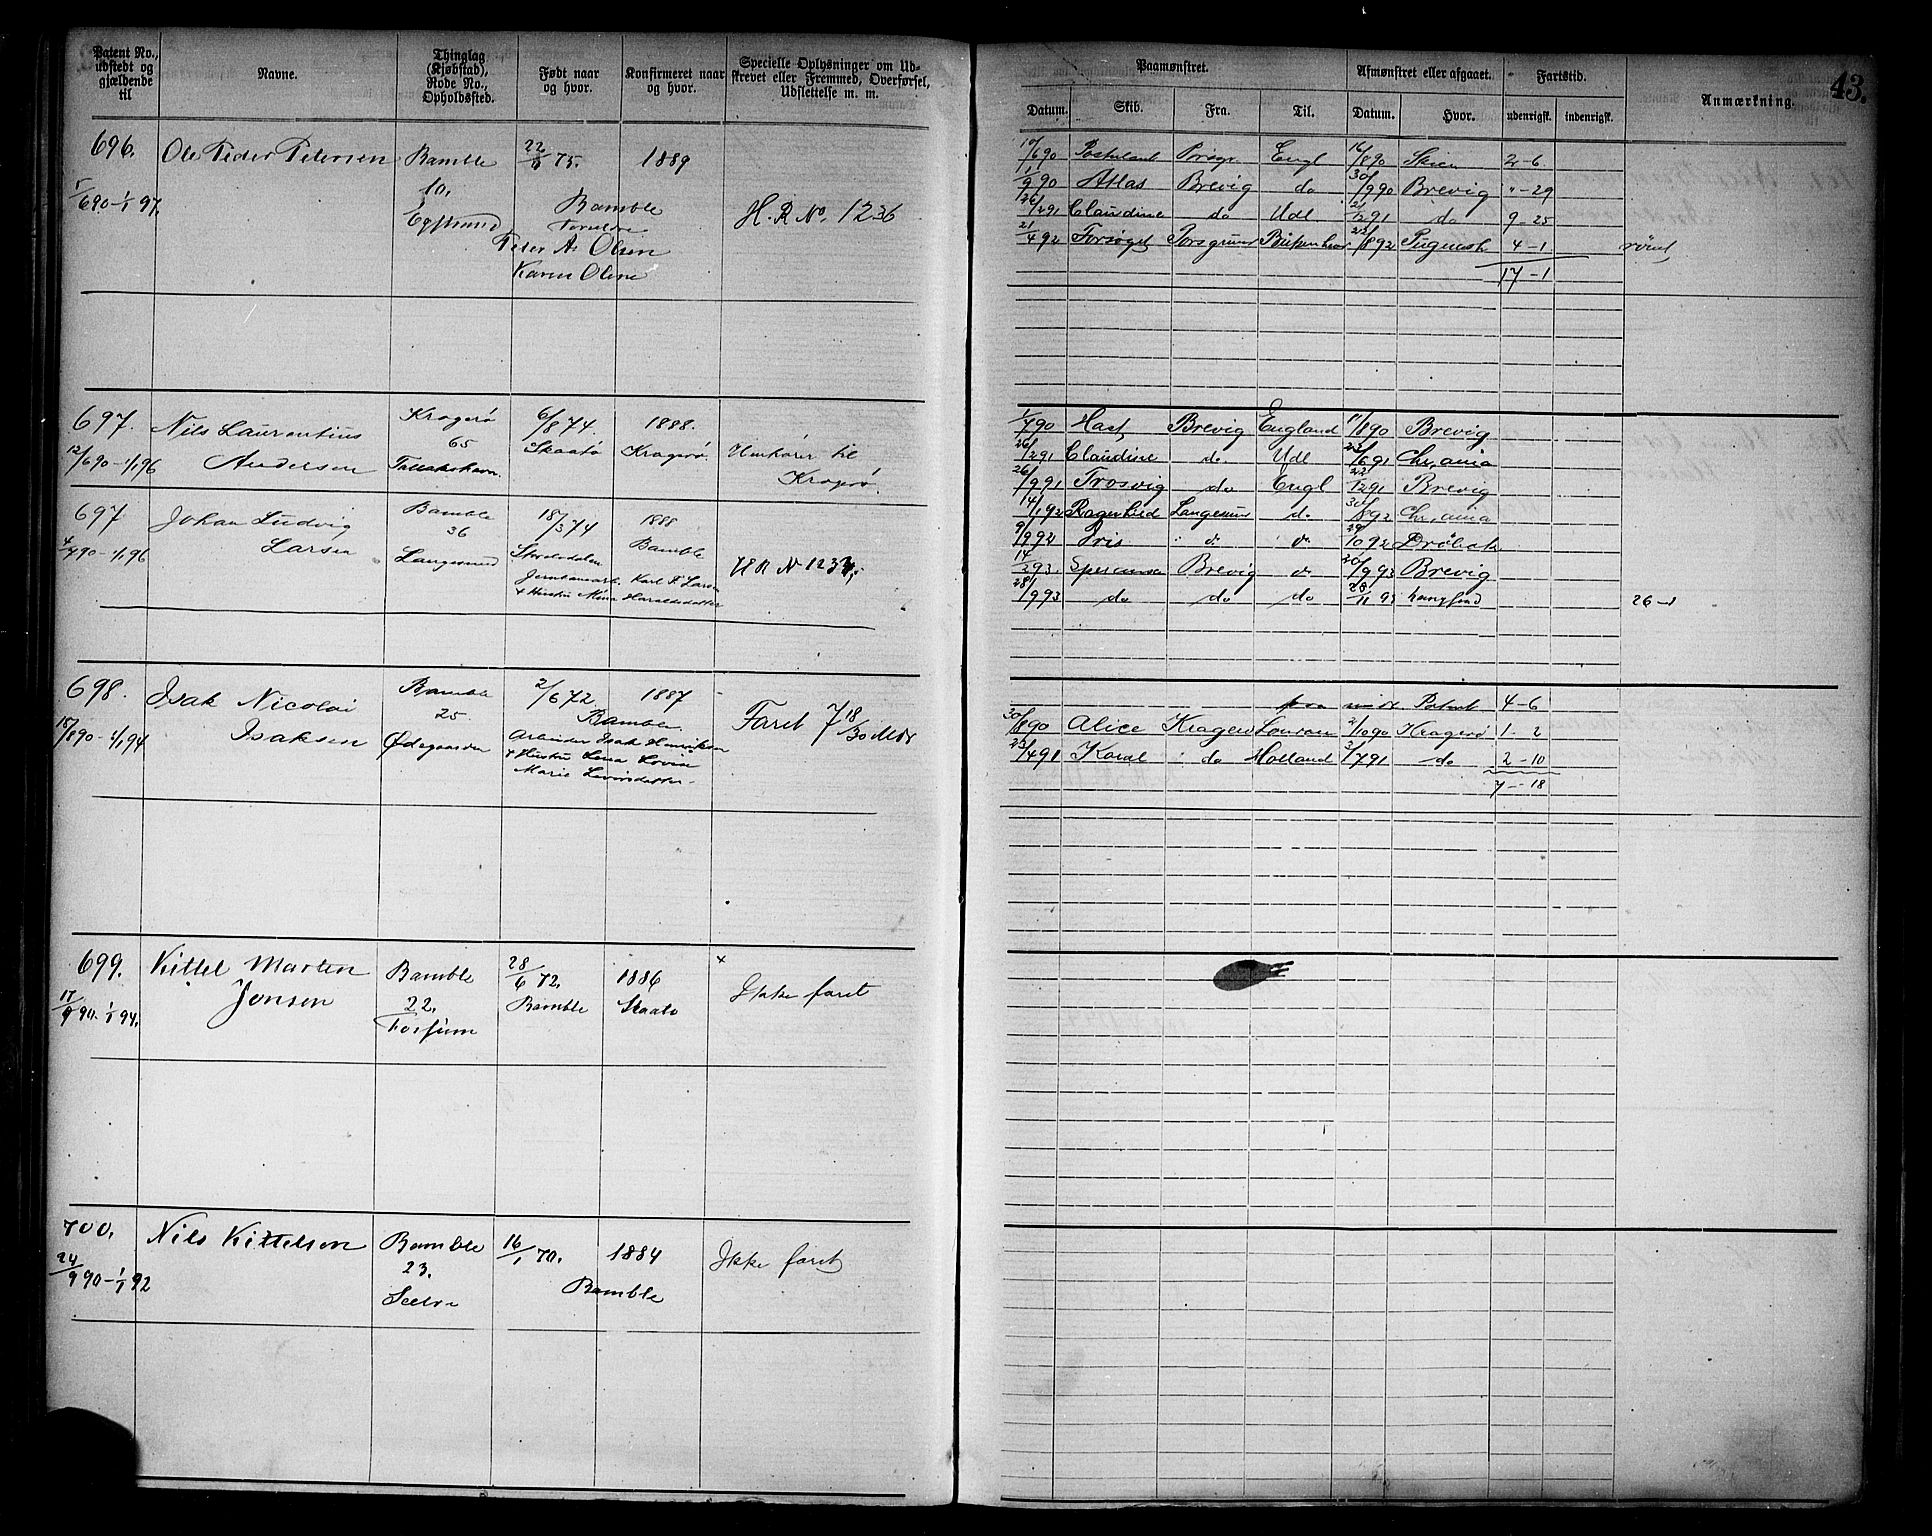 Patent No., udstedt og gjældende til
Navne.
Thinglag (Kjøbstad), Rode No., Opholdssted.
Født naar og hvor.
Konfirmeret naar og hvor.
Specielle Oplysninger om Udskrevet eller Fremmed, Overførsel, Udslettelse m. m.
Paamønstret.
Afmønstret eller afgaaet.
Fartstid.
Anmærkning.
43.
Datum. Skib. Fra. Til. Datum. Hvor. udenrigsk. indenrigsk.
696. Ole Peder Petersen Bamble 22/ 75. 1889
1/6 90 - 1/1 97.
10,
Bamble
Forældre
H. R No. 1236
Peter A. Olsen
Karen Oline
10/6 90 Engl 16/8 90 Skien 2-6
1/9 90 Atlas Brevig do 30/9 90 Brevig "-29
26/2 91 Claudine do Udl 21/12 91 do 9-25
21/4 92 Forsøget Porsgrund 22/8 92 4-1
17-1
697. Nils Laurentius Andersen
12/6 90 - 1/1 96
Kragerø
65
6/8 74
Skaatø
1888.
Kragerø.
til
Kragerø.
697 Johan Ludvig Larsen
4/7 90 - 1/1 96
Bamble
36
Langesund
18/3 74
1888
Bamble
Karl F. Larsen
+ Hustru Haraldsdatter
H R N 1233
1/7 90 Hast Brevig England 11/8 90 Brevig
26/2 91 Claudine do Udl 22/6 91 Chr,ania
26/9 91 Trosvig do Engl 22/12 91 Brevig
14/1 92 Ragnhild Langesund do 30/8 92 Chr,ania
9/9 92 Iris do do 29/10 92 Drøbak
14/2 93. Speranza Brevig do 20/9 93 Brevig
28/9 93 do do do 28/11 93
26-1
698. Isak Nicolai Isaksen
18/8 90 - 1/1 94
Bamble
25.
Ødegaarden
2/6 72
Bamble
1887
Arbeider Isak Henriksen
+ Hustru Lena Lovise
Marie
Faret 7 18/30 Mdr
4-6
30/8 90 Alice Kragerø 2/10 90 Kragerø 1-2
23/4 91 do Holland 3/7 91 do 2-10
7-18
699. Kittel Marten Jonsen
17/9 90. 1/1 94.
Bamble
22.
28/6 72.
Bamble
1886
Skaatø
Ikke faret
700. Nils Kittelsen
24/9 90 - 1/1 92
Bamble
23.
16/1 70.
1884
Bamble
Ikke faret